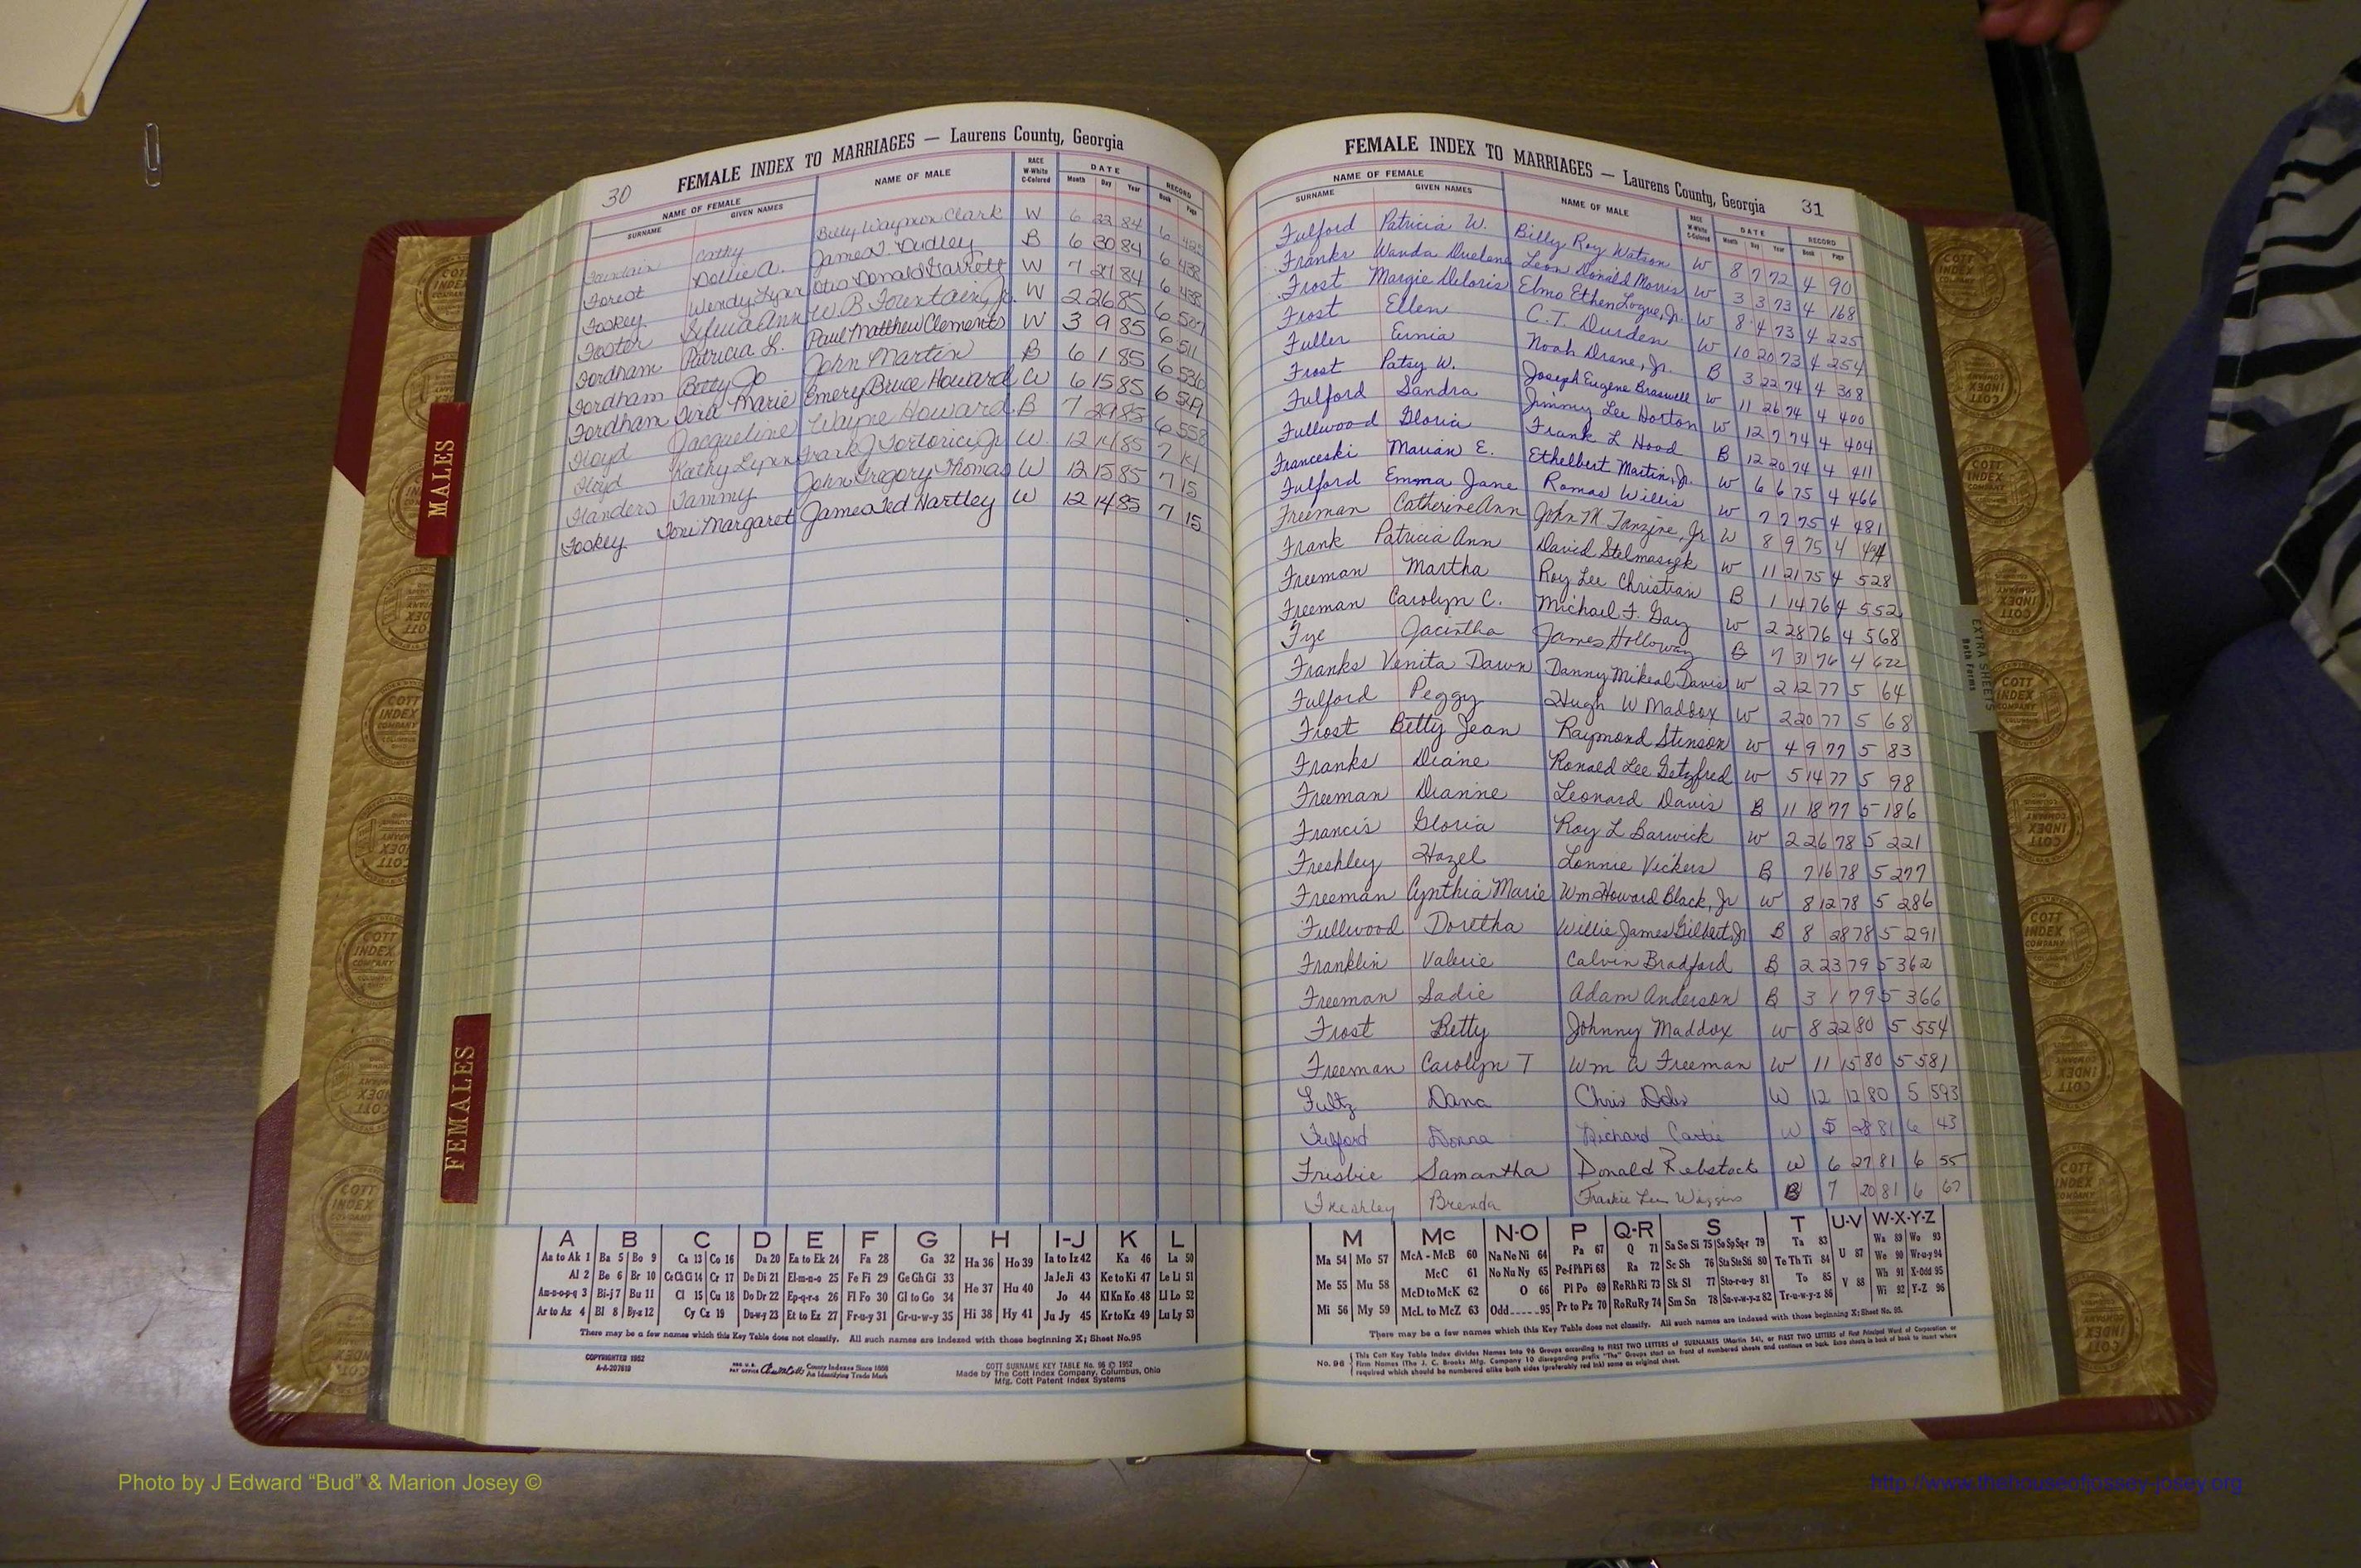 30
FEMALE INDEX TO MARRIAGES — Laurens County, Georgia
NAME OF FEMALE NAME OF MALE RACE W-White C-Colored DATE RECORD
SURNAME GIVEN NAMES Month Day Year Book Page
Cathy Billy Waymon Clark W 6 22 84 6 425
Forest Dollie A. James I. Dudley B 6 30 84 6 438
Foskey Wendy Lynn Otis Donald Garrett W 7 21 84 6 438
Foster Sylvia Ann W. B. Fountain, Jr. W 2 26 85 6 507
Fordham Patricia L. Paul Matthew Clements W 3 9 85 6 511
Fordham Betty Jo John Martin B 6 1 85 6 536
Fordham Tina Marie Emery Bruce Howard W 6 15 85 6
Floyd Jacqueline Wayne Howard B 7 29 85 6 558
Floyd Kathy Lynn Frank J Tortorice Jr W 12 14 85 7
Flanders Tammy John Gregory Thomas W 12 15 85 7 15
Foskey Toni Margaret James Ted Hartley W 12 14 85 7 15
MALES
FEMALES
A B C D E F G H I-J K L
Aa to Ak 1 Ba 5 Bo 9 Ca 13 Co 16 Da 20 Ea to Ek 24 Fa 28 Ga 32 Ha 36 Ho 39 Ia to Iz 42 Ka 46 La 50
Al 2 Be 6 Br 10 Ce Ch Ci 14 Cr 17 De Di 21 El-m-n-o 25 Fe Fi 29 Ge Gh Gi 33 He 37 Hu 40 Ja Je Ji 43 Ke to Ki 47 Le Li 51
Am-n-o-p-q 3 Bi-j 7 Bu 11 Cl 15 Cu 18 Do Dr 22 Ep-q-r-s 26 Fl Fo 30 Gl to Go 34 Jo 44 Kl Kn Ko 48 Ll Lo 52
Ar to Az 4 Bl 8 By-z 12 Cy Cz 19 Du-w-y 23 Et to Ez 27 Fr-u-y 31 Gr-u-w-y 35 Hi 38 Hy 41 Ju Jy 45 Kr to Kz 49 Lu Ly 53
There may be a few names which this Key Table does not classify. All such names are indexed with those beginning X; Sheet No. 95
COPYRIGHTED 1952
A-A-207610
REG. U. S. PAT OFFICE County Indexes Since 1888
An Identifying Trade Mark
COTT SURNAME KEY TABLE No. 96 © 1952
Made by The Cott Index Company, Columbus, Ohio
Mfg. Cott Patent Index Systems
FEMALE INDEX TO MARRIAGES — Laurens County, Georgia 31
NAME OF FEMALE NAME OF MALE RACE W-White C-Colored DATE RECORD
SURNAME GIVEN NAMES Month Day Year Book Page
Fulford Patricia W. Billy Roy Watson W 8 7 72 4 90
Franks Wanda Duelane Leon Donald Morris W 3 3 73 4 168
Frost Margie Deloris Elmo Ethen Logue, Jr. W 8 4 73 4 225
Frost Ellen C. T. Durden W 10 20 73 4 254
Fuller Ernia Noah Drane, Jr. B 3 22 74 4 308
Frost Patsy W. Joseph Eugene Braswell W 11 26 74 4 400
Fulford Sandra Jimmy Lee Horton W 12 7 74 4 404
Fullwood Gloria Frank L Hood B 12 20 74 4 411
Franceski Marian E. Ethelbert Martin, Jr. W 6 6 75 4 466
Fulford Emma Jane Romas Willis W 7 7 75 4 481
Freeman Catherine Ann John M. Tanzine, Jr W 8 9 75 4 494
Frank Patricia Ann David Stelmaszek W 11 21 75 4 528
Freeman Martha Roy Lee Christian B 1 14 76 4 552
Freeman Carolyn C. Michael F. Gay W 2 28 76 4 568
Fye Jacintha James Holloway B 7 31 76 4 622
Franks Venita Dawn Danny Mikeal Davis W 2 12 77 5 64
Fulford Peggy Hugh W Maddox W 2 20 77 5 68
Frost Betty Jean Raymond Stinson W 4 9 77 5 83
Franks Diane Ronald Lee Getzfred W 5 14 77 5 98
Freeman Dianne Leonard Davis B 11 18 77 5 186
Francis Gloria Roy L Barwick W 2 26 78 5 221
Freshley Hazel Lonnie Vickers B 7 16 78 5 277
Freeman Cynthia Marie Wm Howard Black, Jr W 8 12 78 5 286
Fullwood Doretha Willie James Gilbert, Jr B 8 28 78 5 291
Franklin Valerie Calvin Bradford B 2 23 79 5 362
Freeman Sadie Adam Anderson B 3 1 79 5 366
Frost Betty Johnny Maddox W 8 22 80 5 554
Freeman Carolyn T Wm A Freeman W 11 15 80 5 581
Fultz Dana Chris W 12 12 80 5 593
Fulford Donna Richard W 5 28 81 6 43
Frisbie Samantha Donald Rebstock W 6 27 81 6 55
Freshley Brenda Frankie Lee Wiggins B 7 20 81 6 67
M Mc N-O P Q-R S T U-V W-X-Y-Z
Ma 54 Mo 57 McA - McB 60 Na Ne Ni 64 Pa 67 Q 71 Sa Se Si 75 So Sp Sq-r 79 Ta 83 U 87 Wa 89 Wo 93
Me 55 Mu 58 McC 61 No Nu Ny 65 Pe-f Ph Pi 68 Ra 72 Sc Sh 76 Sta Ste Sti 80 Te Th Ti 84 We 90 Wr-u-y 94
McD to McK 62 O 66 Pl Po 69 Re Rh Ri 73 Sk Sl 77 Sto-r-u-y 81 To 85 V 88 Wh 91 X-Odd 95
Mi 56 My 59 McL to McZ 63 Odd 95 Pr to Pz 70 Ro Ru Ry 74 Sm Sn 78 Su-v-w-y-z 82 Tr-u-w-y-z 86 Wi 92 Y-Z 96
There may be a few names which this Key Table does not classify. All such names are indexed with those beginning X; Sheet No. 95.
No. 96 This Cott Key Table Index divides Names into 96 Groups according to FIRST TWO LETTERS of SURNAMES (Martin 54), or FIRST TWO LETTERS of First Principal Word of Corporation or
Firm Names (The J. C. Brooks Mfg. Company 10 disregarding prefix "The" Groups start on front of numbered sheets and continue on back. Extra sheets in back of book to insert where
required which should be numbered alike both sides (preferably red ink) same as original sheet.
EXTRA SHEETS
Both Forms
COTT INDEX COMPANY COLUMBUS OHIO
Photo by J Edward “Bud” & Marion Josey ©
http://www.thehouseofjossey-josey.org